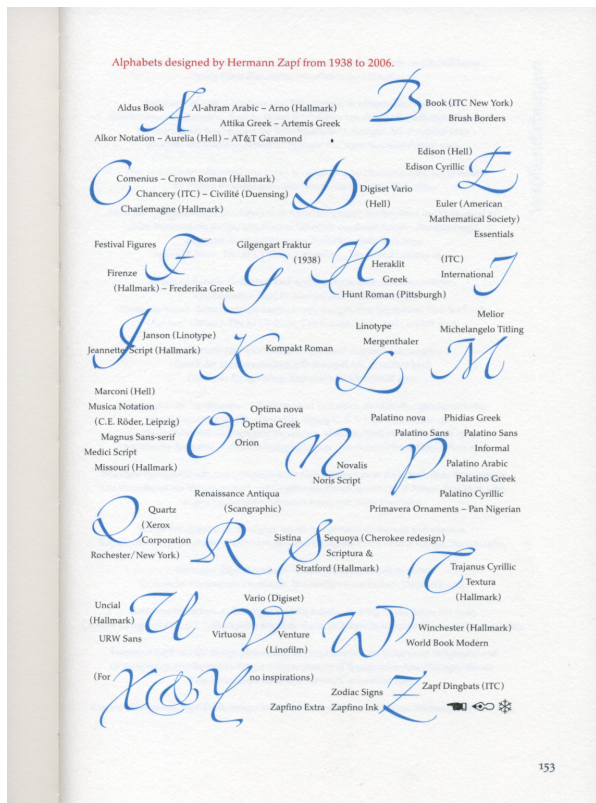 Alphabets designed by Hermann Zapf from 1938 to 2006.
Aldus Book A Al-ahram Arabic – Arno (Hallmark)
Attika Greek – Artemis Greek
Alkor Notation – Aurelia (Hell) – AT&T Garamond
B Book (ITC New York)
Brush Borders
C Comenius – Crown Roman (Hallmark)
Chancery (ITC) – Civilité (Duensing)
Charlemagne (Hallmark)
D Digiset Vario
(Hell)
Edison (Hell)
Edison Cyrillic E
Euler (American
Mathematical Society)
Essentials
Festival Figures F
Firenze
(Hallmark) – Frederika Greek
Gilgengart Fraktur
(1938)
G
H Heraklit
Greek
Hunt Roman (Pittsburgh)
(ITC)
International I
J Janson (Linotype)
Jeannette Script (Hallmark)
K Kompakt Roman
Linotype
Mergenthaler
L
Melior
Michelangelo Titling
M
Marconi (Hell)
Musica Notation
(C.E. Röder, Leipzig)
Magnus Sans-serif
Medici Script
Missouri (Hallmark)
O Optima nova
Optima Greek
Orion
N Novalis
Noris Script
Palatino nova Phidias Greek
Palatino Sans Palatino Sans
Informal
P Palatino Arabic
Palatino Greek
Palatino Cyrillic
Primavera Ornaments – Pan Nigerian
Q Quartz
(Xerox
Corporation
Rochester/New York)
Renaissance Antiqua
(Scangraphic)
R
Sistina S Sequoya (Cherokee redesign)
Scriptura &
Stratford (Hallmark)
T Trajanus Cyrillic
Textura
(Hallmark)
Uncial U
(Hallmark)
URW Sans
Vario (Digiset)
Virtuosa V Venture
(Linofilm)
W Winchester (Hallmark)
World Book Modern
(For X&Y no inspirations)
Zodiac Signs Z Zapf Dingbats (ITC)
Zapfino Extra Zapfino Ink
153